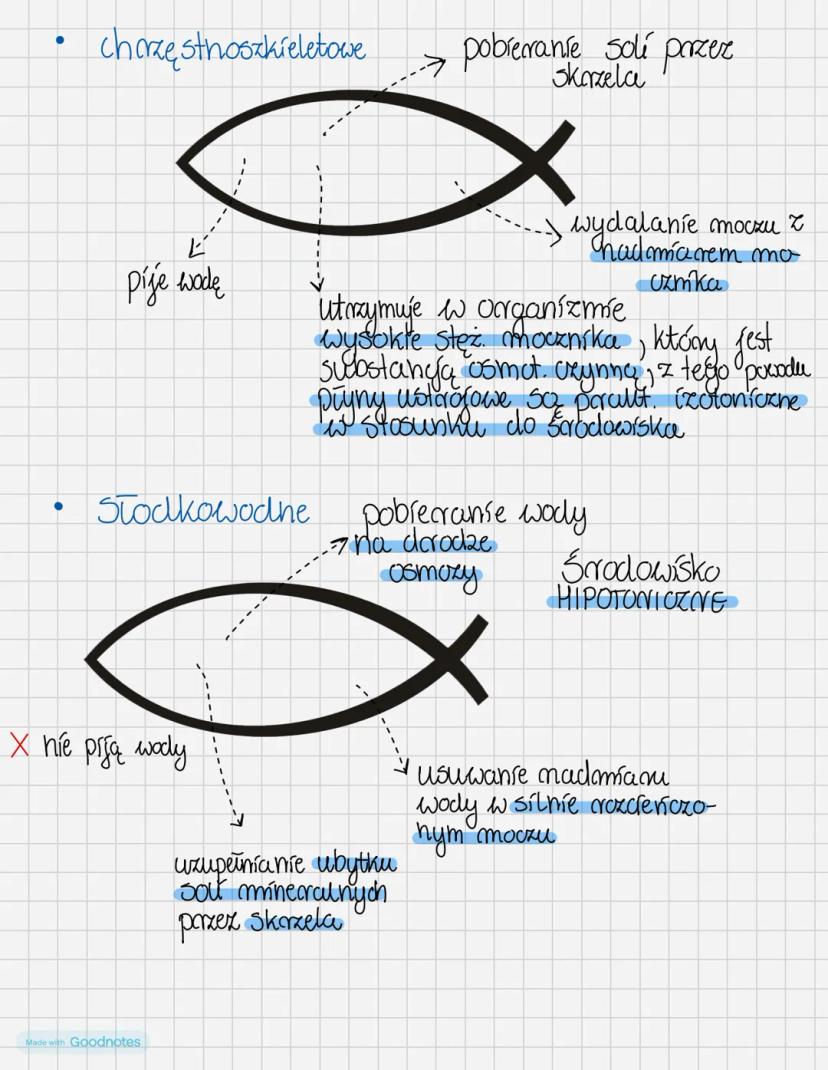 • chrzęstnoszkieletowe
pobieranie soli przez
skrzela
wydalanie moczu z
nadmiarem mo-
cznika
pije wodę
utrzymuje w organizmie
wysokie stęż. mocznika, który jest
substancją osmot. czynną, z tego powodu
płyny ustrojowe są parakt. izotoniczne
w stosunku do środowiska
• Słodkowodne
pobieranie wody
na drodze
osmozy
Środowisko
HIPOTONICZNE
X nie piją wody
usuwanie nadmiaru
wody w silnie rozcieńczo-
nym moczu
uzupełnianie ubytku
soli mineralnych
przez skrzela
Made with Goodnotes